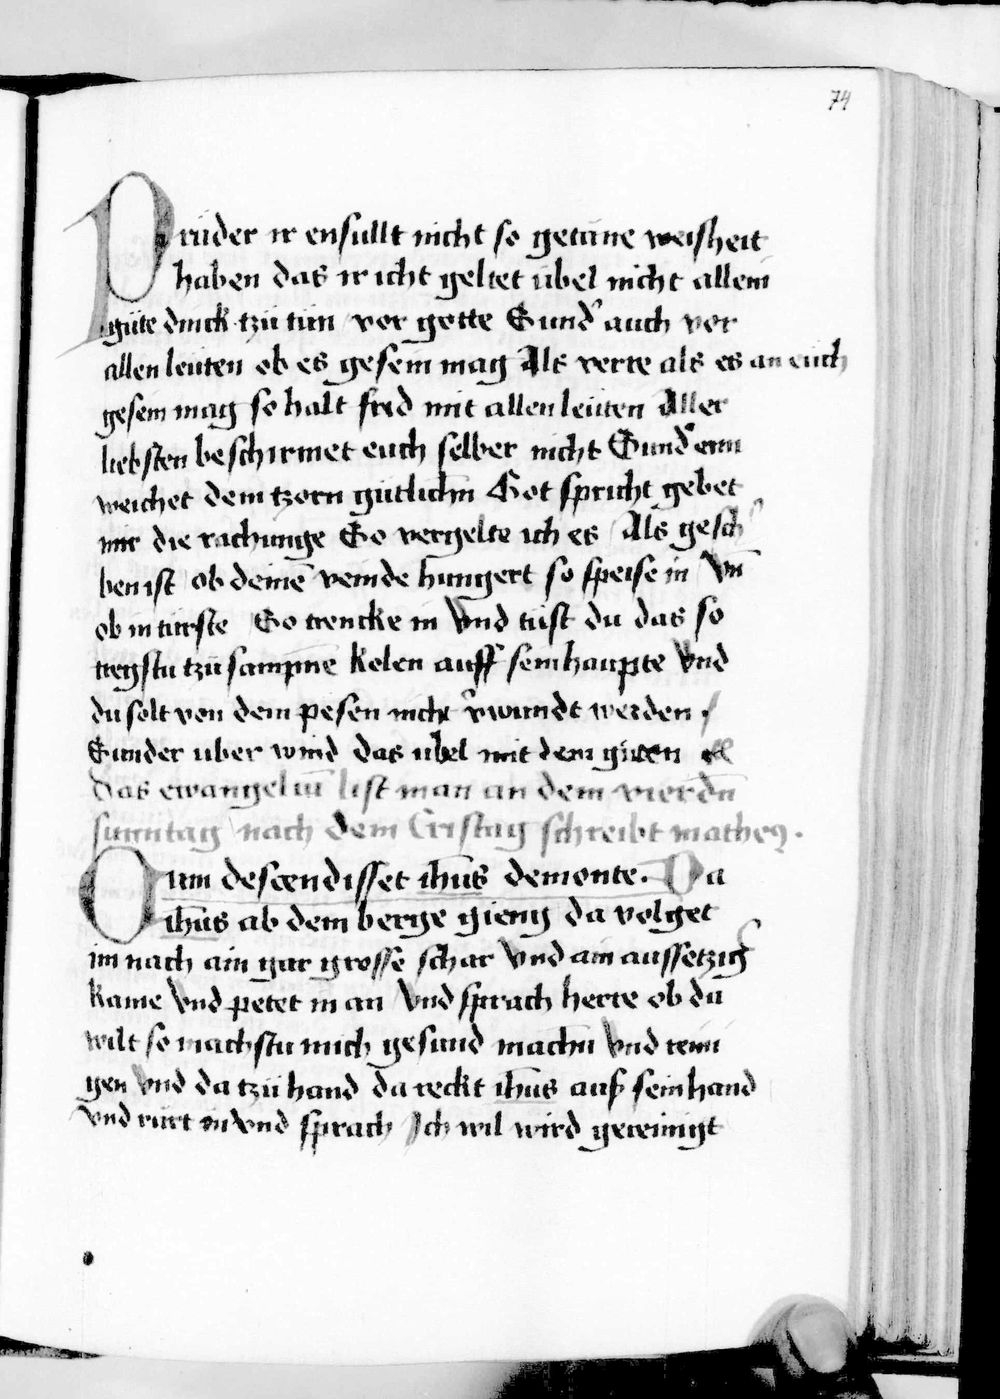 74
Prüder ir ensullt nicht so getüne weisheit
haben das ir icht geltet übel nicht allein
güte dinck tzü tün vor gotte Sund' auch vor
allen leuten ob es gesein mag Als verre als es an euch
gesein mag so halt frid mit allen leüten Aller
liebsten beschirmet euch selber nicht Sund' enn
weichet dem tzorn gütlichn̄ Got spricht gebet
mir die rachunge So vergelte ich es Als gesch'
ben ist ob deinē veinde hungert so speise in Vn̄
ob in türste So trencke in Vnd tüst du das so
tregstu tzü sampne kolen auff sein haupte Vnd
du solt von dem pesen nicht v'wundt werden /
Sunder uber wind das ubel mit dem güten
Das ewangeliū list man an dem vierdn̄
sunntag nach dem Cristag schreibt mathey.
Cum descendisset ih̄us de monte. Da
ih̄us ab dem berge gieng da volget
im nach ain gar grosse schar Vnd ain aussetzig'
kame Vnd petet in an Vnd sprach herre ob du
wilt so machstu mich gesund machn̄ Vnd reini
gen Vnd da tzü hand da reckt ih̄us auß sein hand
Vnd rürt in vnd sprach Ich wil wird gereinigt